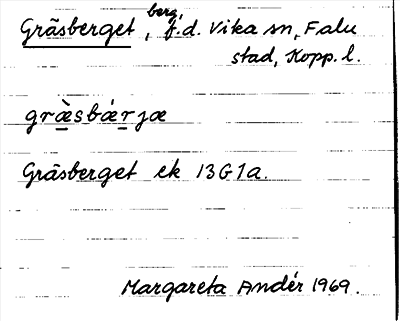 Gräsberget, berg, f.d. Vika sn, Falu
stad, Kopp. l.
græ̀sbǽrjæ
Gräsberget ek 13G1a.
Margareta Andér 1969.